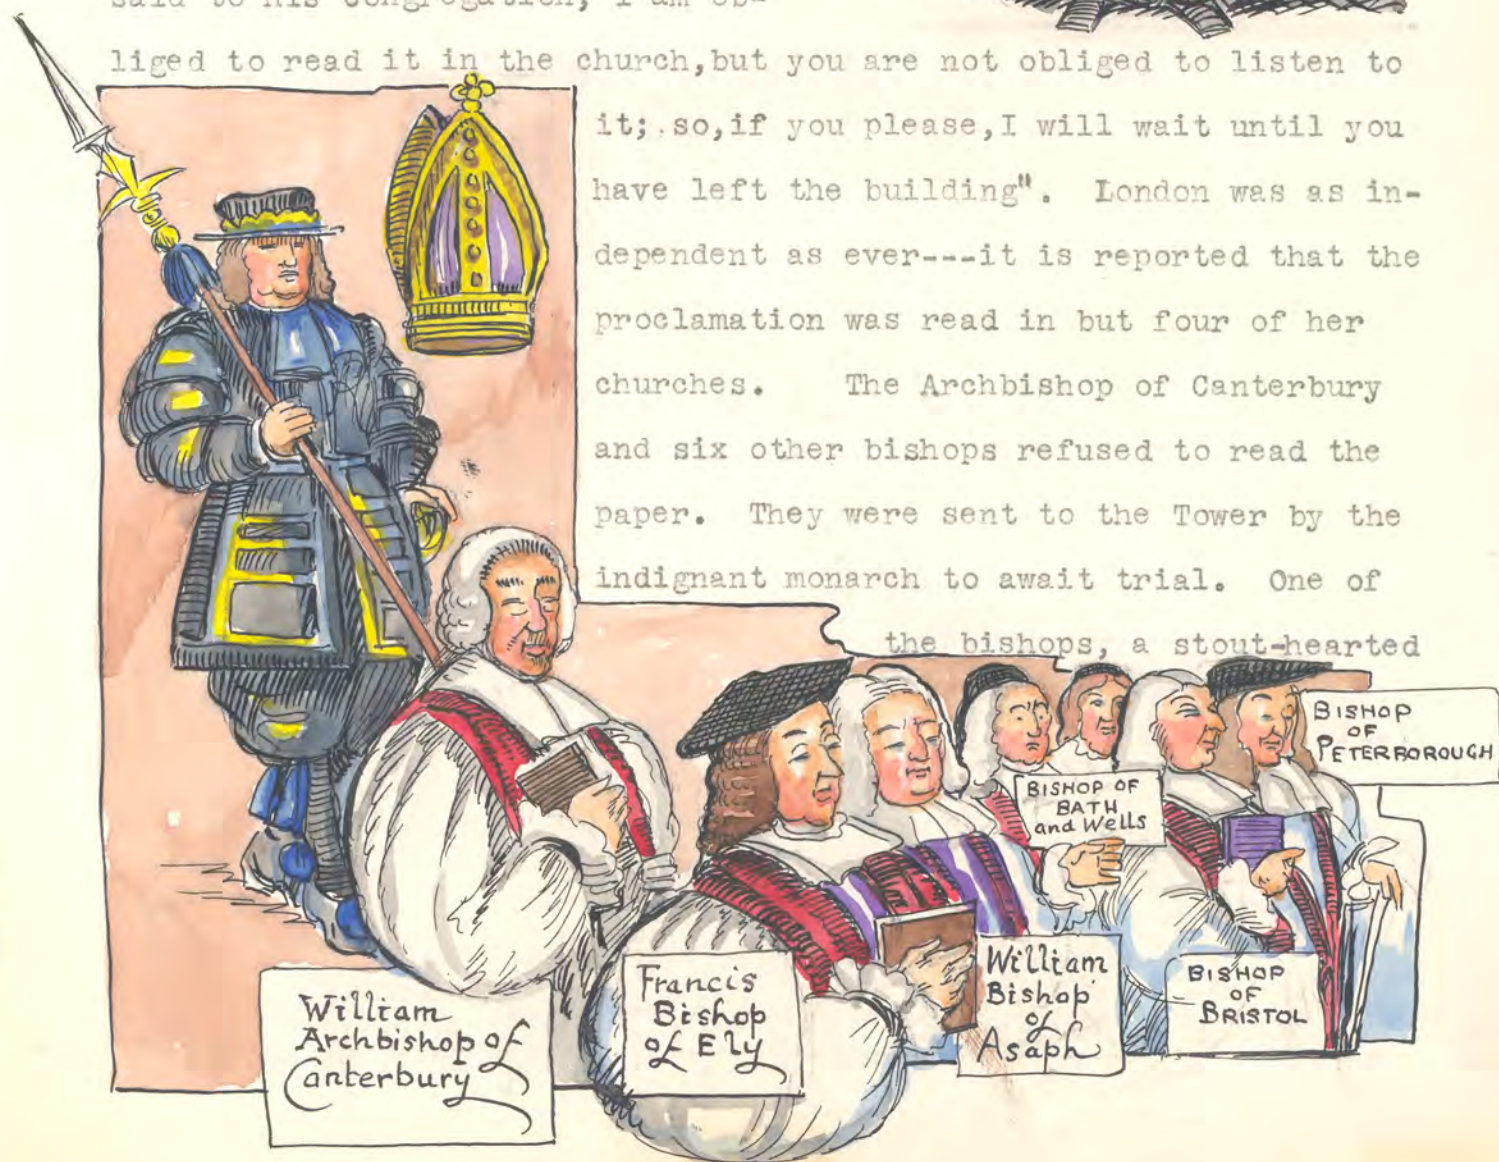 said to his congregation, "I am ob-
liged to read it in the church,but you are not obliged to listen to
it; so,if you please,I will wait until you
have left the building". London was as in-
dependent as ever---it is reported that the
proclamation was read in but four of her
churches. The Archbishop of Canterbury
and six other bishops refused to read the
paper. They were sent to the Tower by the
indignant monarch to await trial. One of
the bishops, a stout-hearted
BISHOP
OF
PETERBOROUGH
BISHOP OF
BATH
and Wells
William
Archbishop of
Canterbury
Francis
Bishop
of Ely
William
Bishop
of
Asaph
BISHOP
OF
BRISTOL